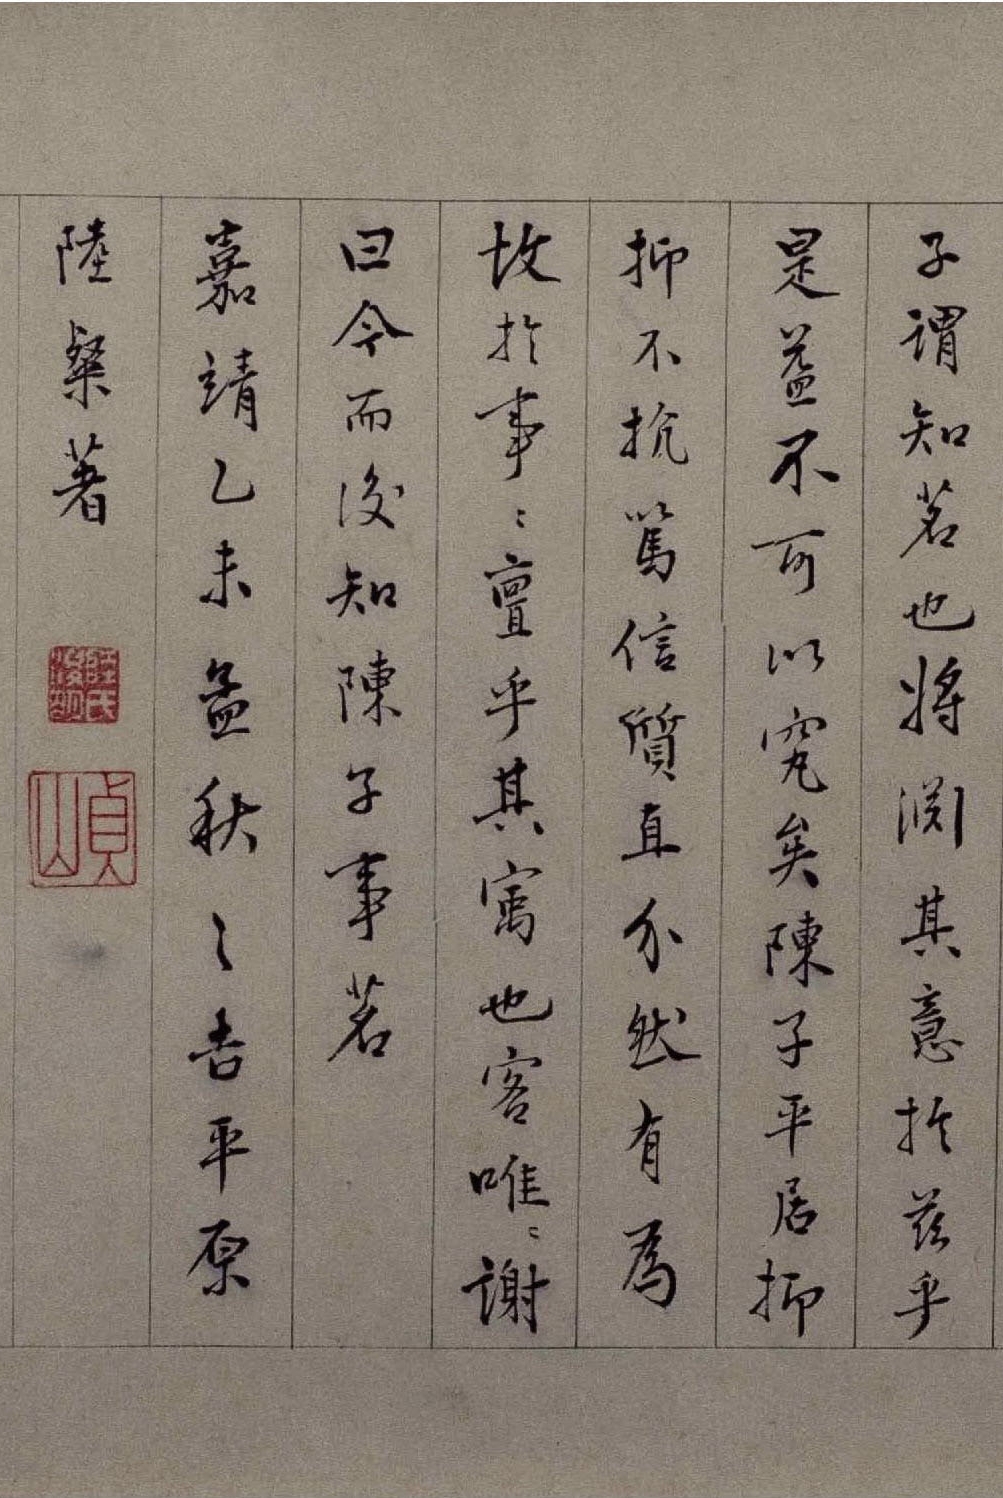 子謂知茗也將淵其意於茲乎
是益不可以究矣陳子平居抑
抑不抗篤信質直介然有為
故於事〻亶乎其寓也客唯〻謝
曰今而後知陳子事茗
嘉靖乙未孟秋之吉平原
陸粲著
陸氏浚明
貞山